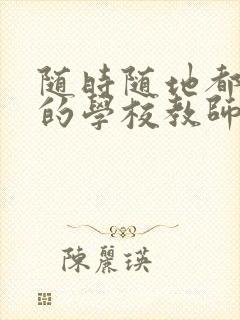 随時随地都
的學校教師
陳麗瑛